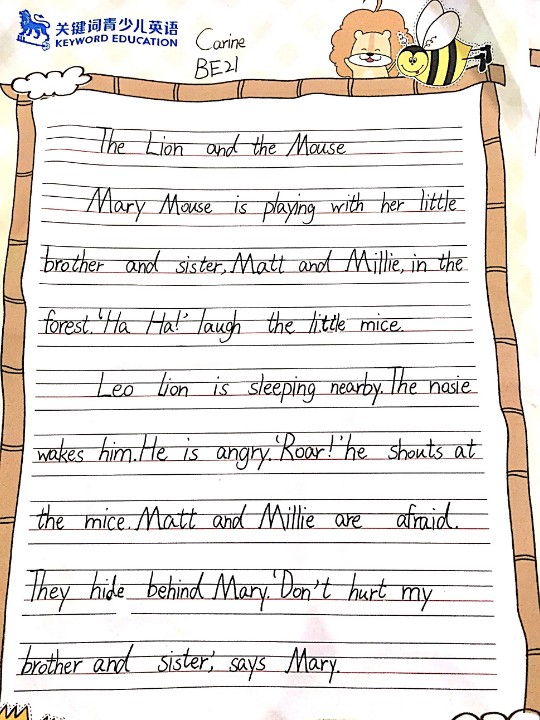 关键词青少儿英语
KEYWORD EDUCATION
Carine
BE21
The Lion and the Mouse
Mary Mouse is playing with her little
brother and sister, Matt and Millie, in the
forest. 'Ha Ha!' laugh the little mice.
Leo Lion is sleeping nearby. The nosie
wakes him. He is angry. 'Roar!' he shouts at
the mice. Matt and Millie are afraid.
They hide behind Mary. 'Don't hurt my
brother and sister', says Mary.